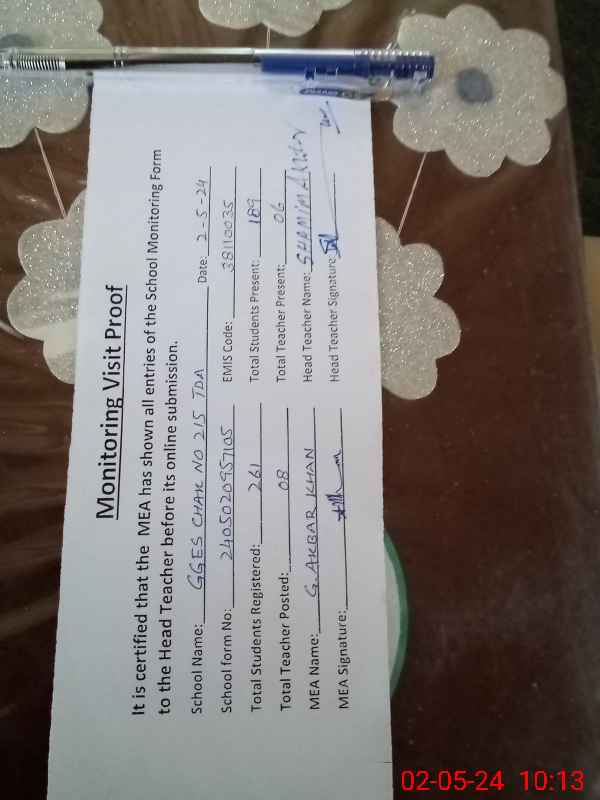 Monitoring Visit Proof
It is certified that the MEA has shown all entries of the School Monitoring Form
to the Head Teacher before its online submission.
School Name: GGES CHAK NO 215 TDA Date: 2-5-24
School form No: 2405020957105 EMIS Code: 38110035
Total Students Registered: 261 Total Students Present: 189
Total Teacher Posted: 08 Total Teacher Present: 06
MEA Name: G. AKBAR KHAN Head Teacher Name: SHAMIM
MEA Signature: Head Teacher Signature:
02-05-24 10:13